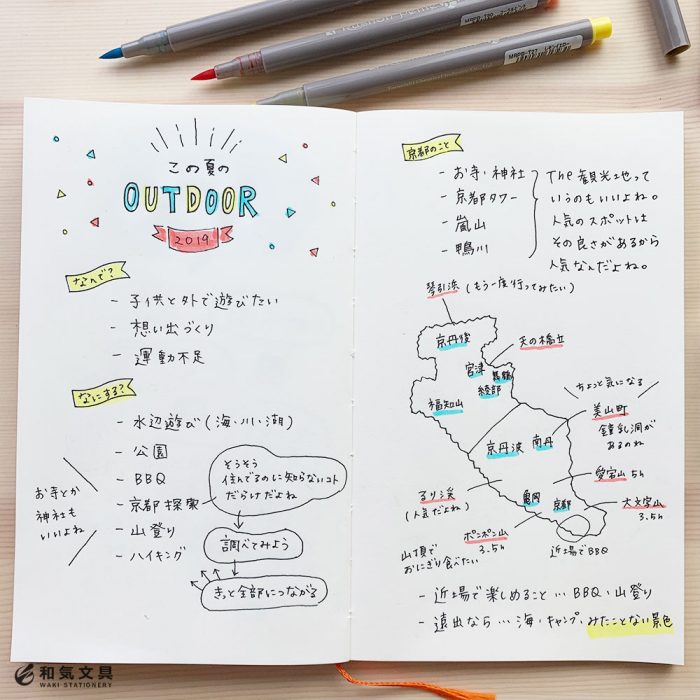 この夏の
OUTDOOR
2019
なんで?
- 子供と外で遊びたい
- 想い出づくり
- 運動不足
なにする?
- 水辺遊び(海・川・湖)
- 公園
- BBQ
- 京都探索
- 山登り
- ハイキング
お寺とか
神社も
いいよね
そうそう
住んでるのに知らないコト
だらけだよね
調べてみよう
きっと全部につながる
京都のこと
- お寺・神社
- 京都タワー
- 嵐山
- 鴨川
The 観光地って
いうのもいいよね。
人気のスポットは
その良さがあるから
人気なんだよね。
琴引浜(もう一度行ってみたい)
京丹後
天の橋立
宮津
舞鶴
綾部
福知山
ちょっと気になる
美山町
鍾乳洞が
あるのね
京丹波
南丹
愛宕山 5h
るり渓
(人気だよね)
亀岡
京都
大文字山
3.5h
ポンポン山
3.5h
山頂で
おにぎり食べたい
近場でBBQ
- 近場で楽しめること…BBQ・山登り
- 遠出なら…海・キャンプ・みたことない景色
和気文具
WAKI STATIONERY